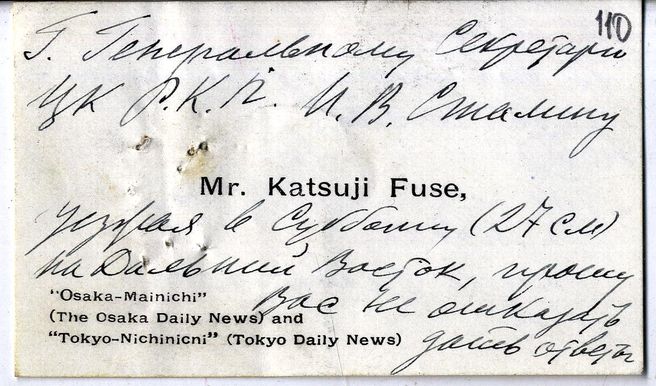 110
Г. Генеральному Секретарю
ЦК Р.К.П. И. В. Сталину
Mr. Katsuji Fuse,
уезжая в Субботу (27 см)
на Дальний Восток, прошу
Вас не отказать
дать ответы
"Osaka-Mainichi"
(The Osaka Daily News) and
"Tokyo-Nichinicni" (Tokyo Daily News)